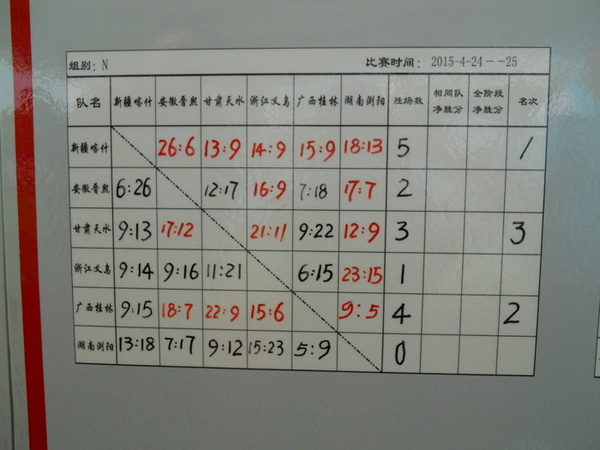 组别: N 比赛时间: 2015-4-24--25
队名 新疆喀什 安徽晋熙 甘肃天水 浙江义乌 广西桂林 湖南浏阳 胜场数 相同队净胜分 全阶段净胜分 名次
新疆喀什 26:6 13:9 14:9 15:9 18:13 5 1
安徽晋熙 6:26 12:17 16:9 7:18 17:7 2
甘肃天水 9:13 17:12 21:11 9:22 12:9 3 3
浙江义乌 9:14 9:16 11:21 6:15 23:15 1
广西桂林 9:15 18:7 22:9 15:6 9:5 4 2
湖南浏阳 13:18 7:17 9:12 15:23 5:9 0